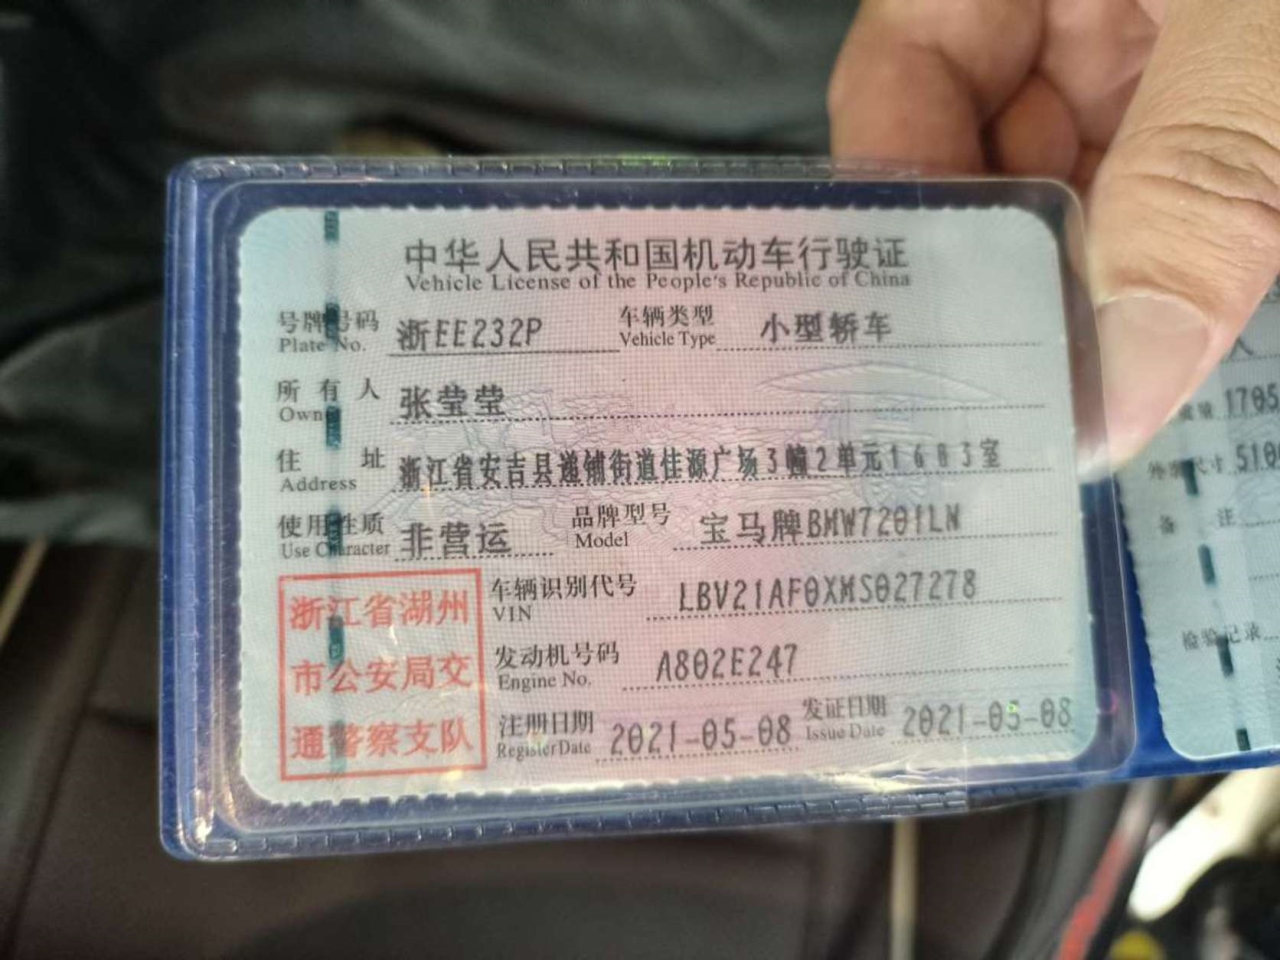 中华人民共和国机动车行驶证
Vehicle License of the People's Republic of China
号牌号码 浙EE232P 车辆类型 小型轿车
Plate No. Vehicle Type
所有人 张莹莹
Owner
住址 浙江省安吉县递铺街道佳源广场3幢2单元1603室
Address
使用性质 非营运 品牌型号 宝马牌BMW7201LN
Use Character Model
浙江省湖州
市公安局交
通警察支队
车辆识别代号 LBV21AF0XMS027278
VIN
发动机号码 A802E247
Engine No.
注册日期 2021-05-08 发证日期 2021-05-08
Register Date Issue Date
人
质量 1705
外廓尺寸 510
备注
检验记录